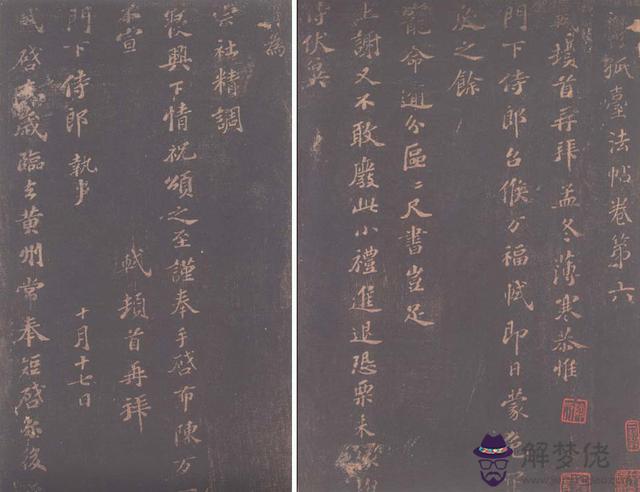 孤臺法帖卷第六
頓首再拜孟冬薄寒恭惟
門下侍郎台候万福軾即日蒙
庇之餘
寵命逾分區二尺書豈足
上謝又不敢廢此小禮進退恐栗未
侍伏冀
為
宗社精調
寢興下情祝頌之至謹奉手啓布陳万
一不宣
軾頓首再拜
門下侍郎 執事
十月十七日
軾啓去歲臨去黃州常奉短啓尔後
解梦佬